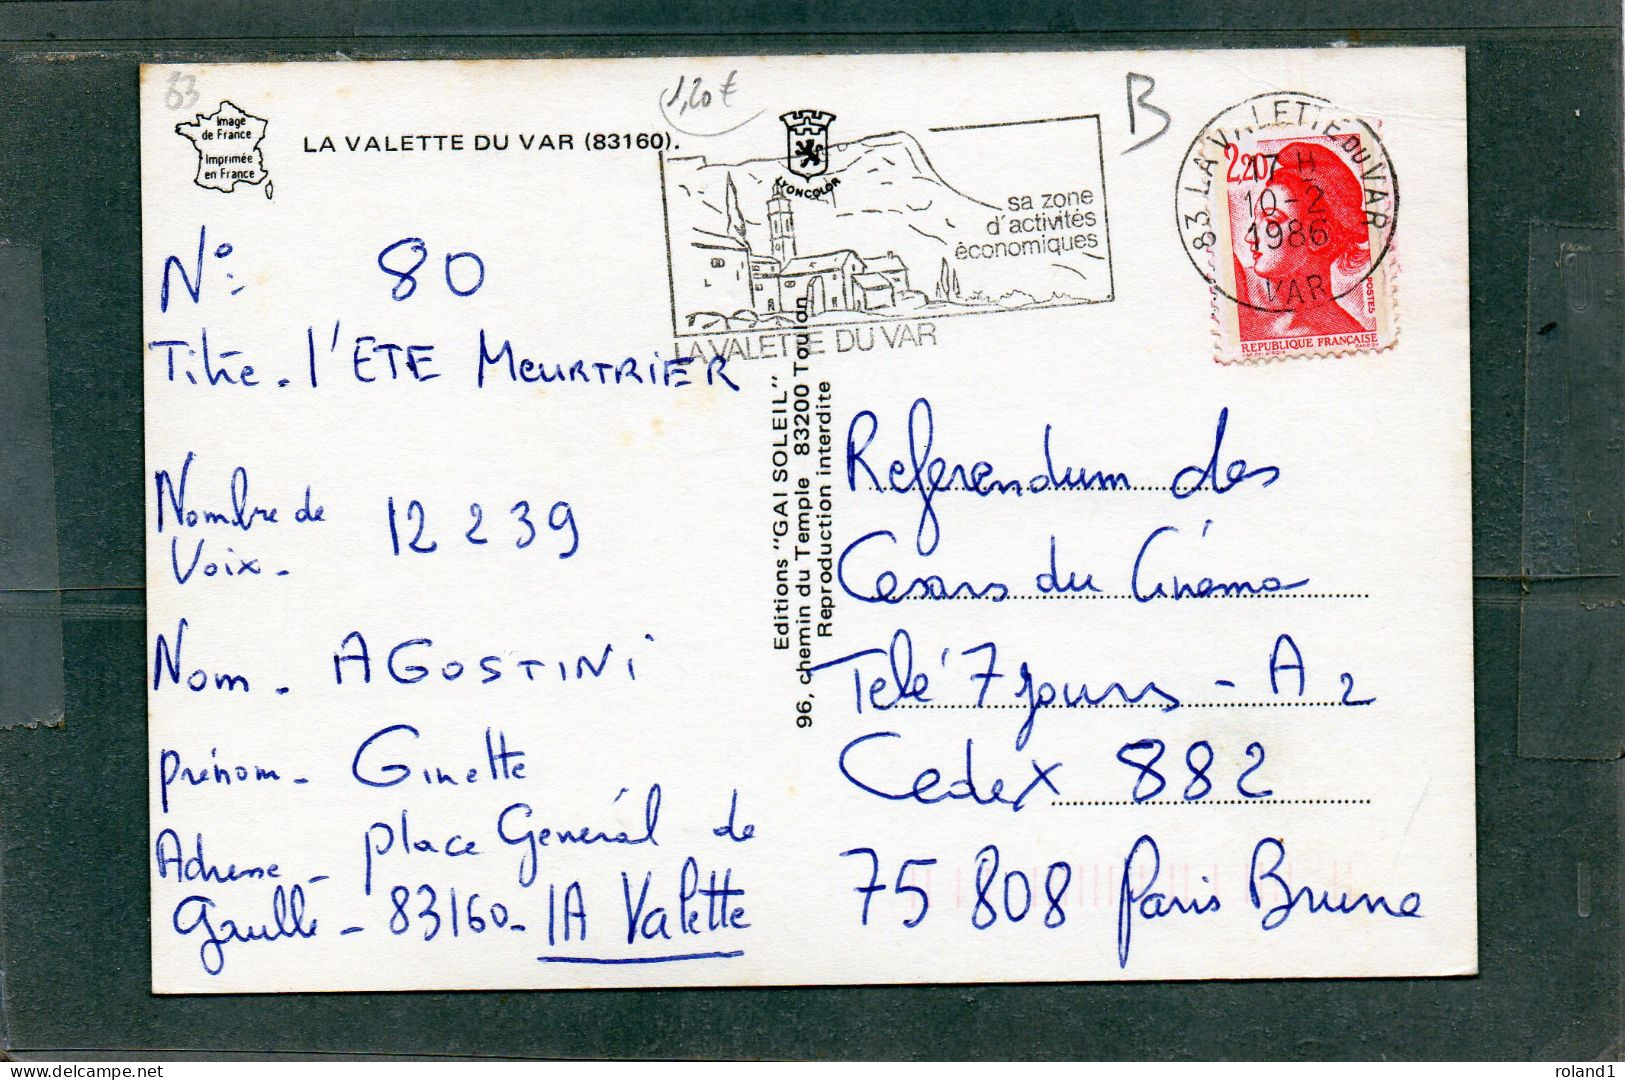 83
1,20 €
B
Image
de France
Imprimée
en France
LA VALETTE DU VAR (83160).
LYONCOLOR
sa zone
d'activités
économiques
LA VALETTE DU VAR
83 LA VALETTE DU VAR
17 H
10-2
1986
VAR
2,20
POSTES
REPUBLIQUE FRANÇAISE
N°: 80
Titre - l'ETE MEURTRIER
Nombre de
Voix - 12 239
Nom - AGOSTINI
prénom - Ginette
Adresse - place Général de
Gaulle - 83160 - LA Valette
Editions "GAI SOLEIL"
96, chemin du Temple 83200 Toulon
Reproduction interdite
Referendum des
Cesars du Cinéma
Telé 7 jours - A 2
Cedex 882
75 808 Paris Brune
roland1